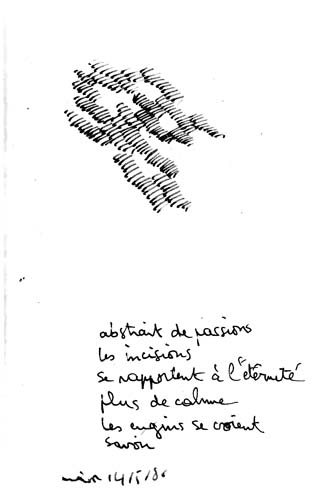 abstrait de passions
les incisions
se rapportent à l'éternité
plus de calme
les engins se croient
savoir
14/5/86